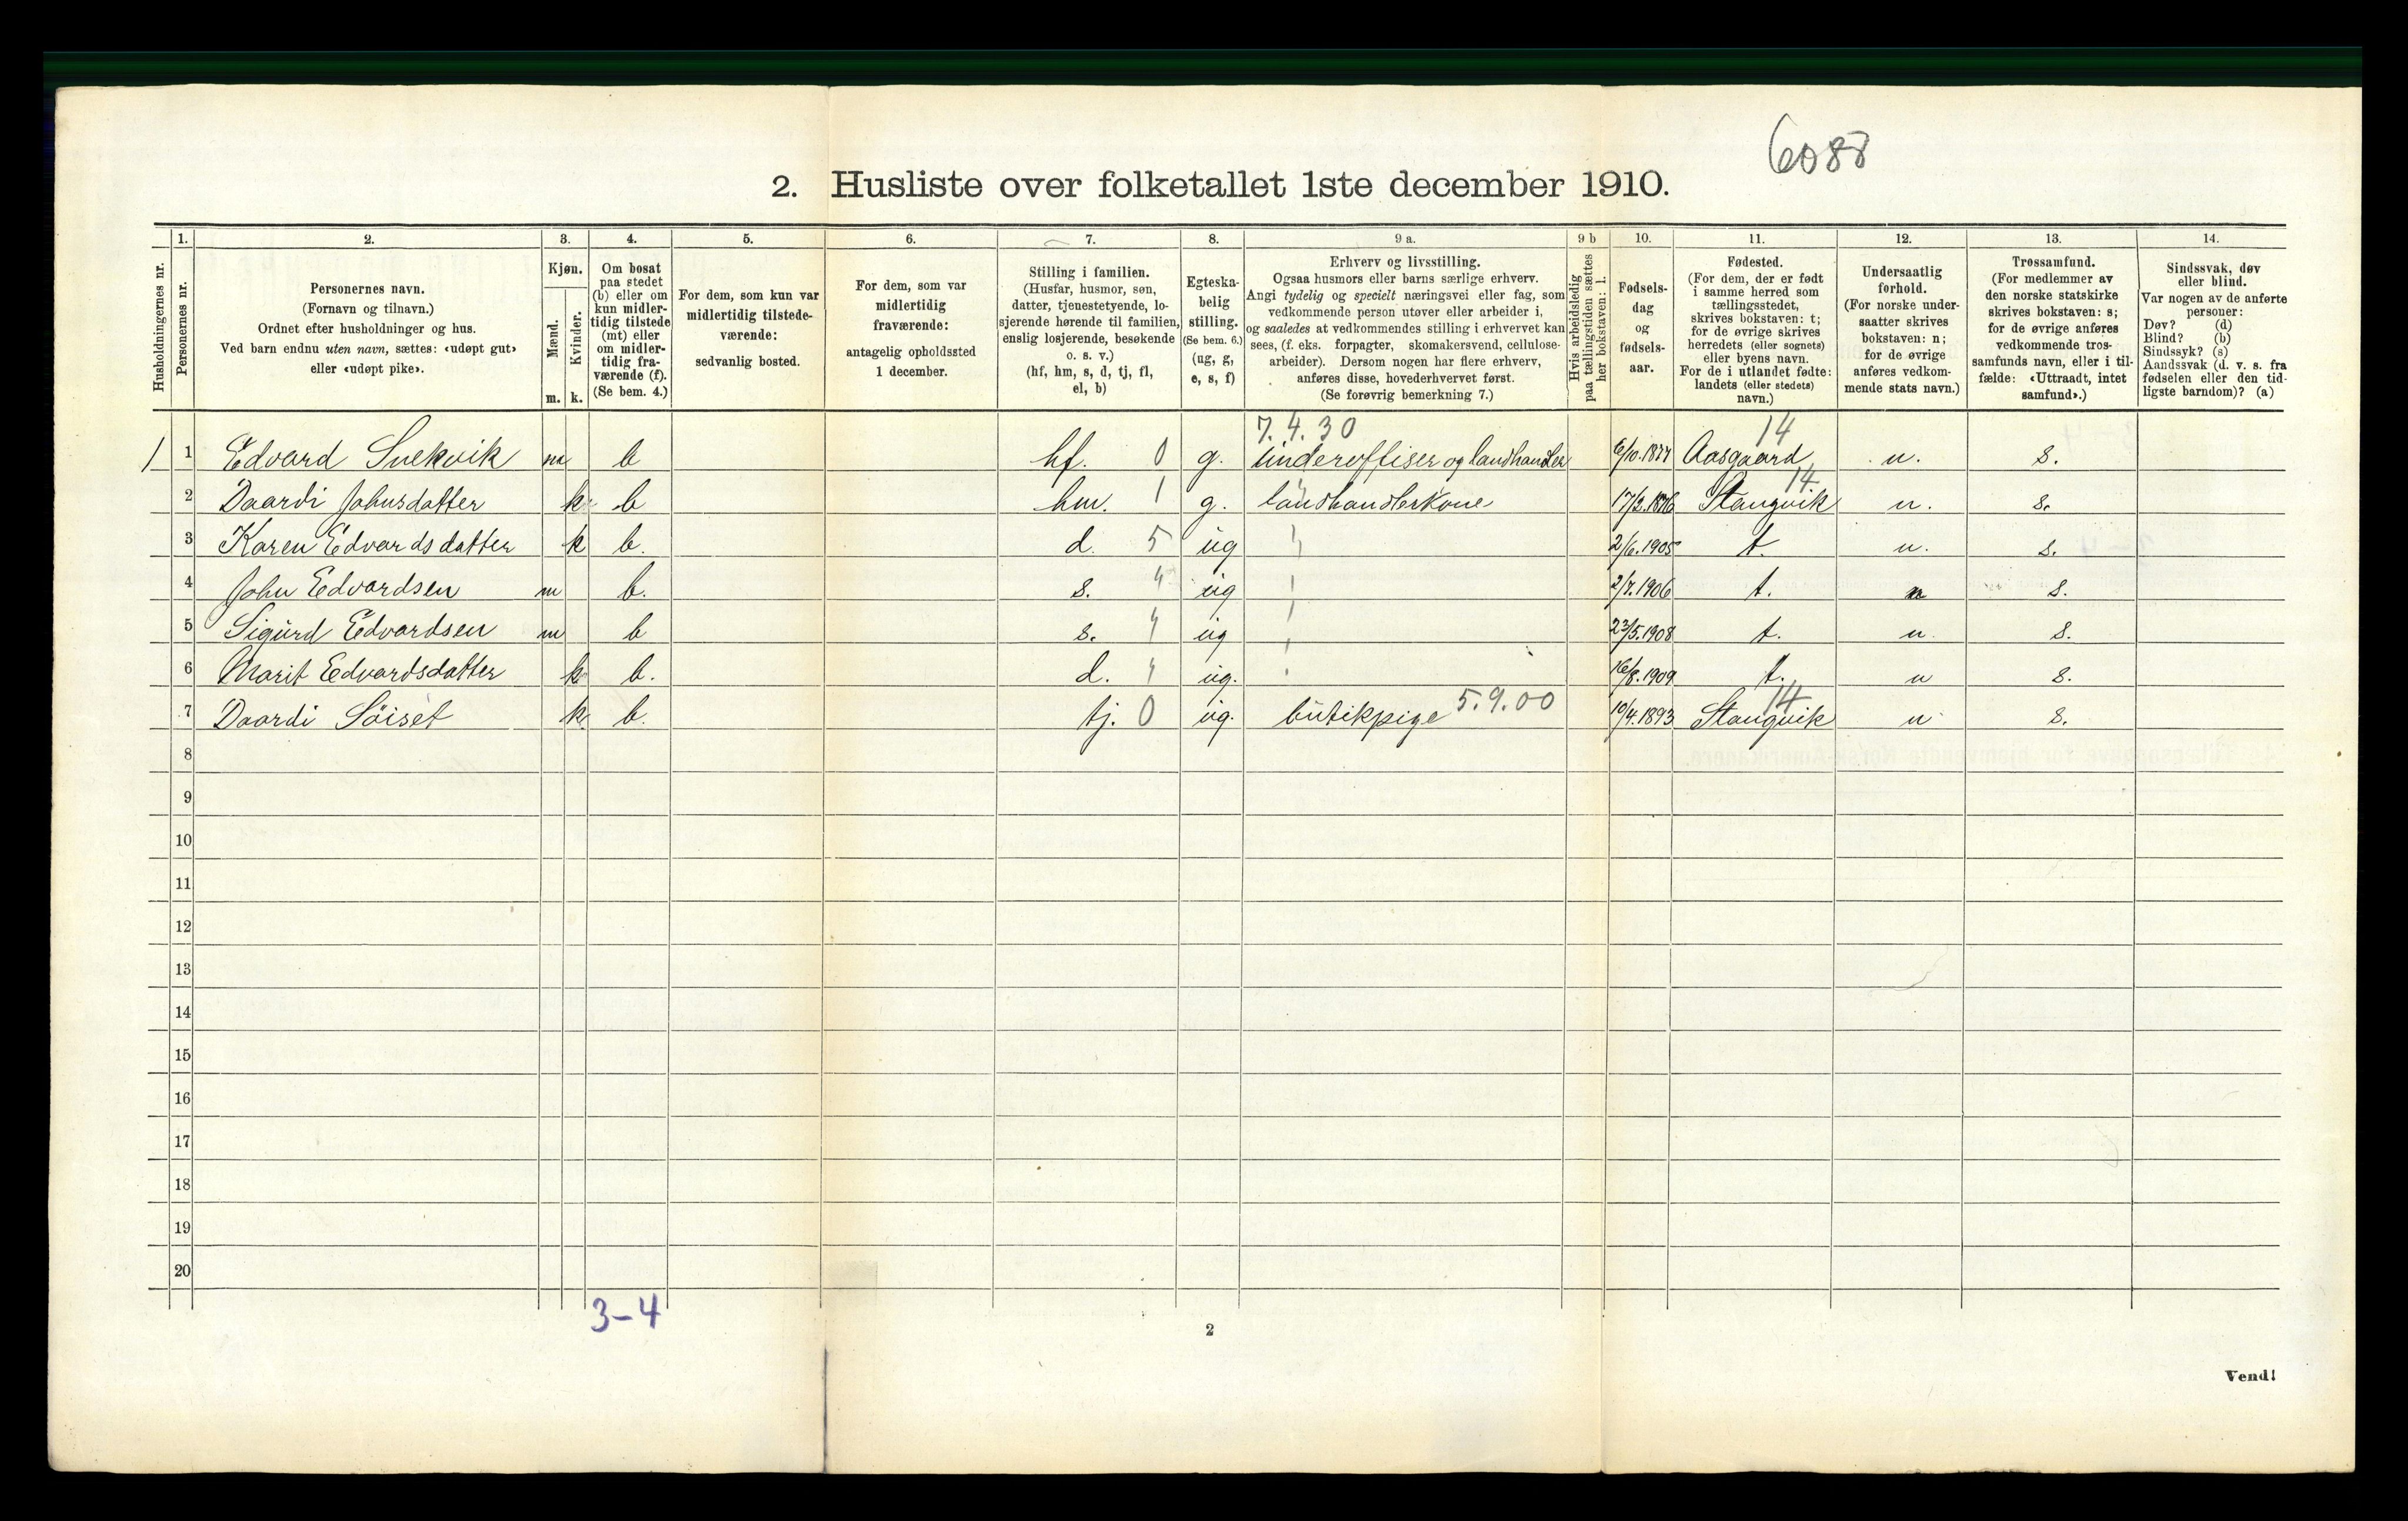 6088
2. Husliste over folketallet 1ste december 1910.
1. 2. 3. 4. 5. 6. 7. 8. 9 a. 9 b 10. 11. 12. 13. 14.
Husholdningernes nr.
Personernes nr.
Personernes navn.
(Fornavn og tilnavn.)
Ordnet efter husholdninger og hus.
Ved barn endnu uten navn, sættes: «udøpt gut»
eller «udøpt pike».
Kjøn.
Mænd.
Kvinder.
m. k.
Om bosat
paa stedet
(b) eller om
kun midler-
tidig tilstede
(mt) eller
om midler-
tidig fra-
værende (f).
(Se bem. 4.)
For dem, som kun var
midlertidig tilstede-
værende:
sedvanlig bosted.
For dem, som var
midlertidig
fraværende:
antagelig opholdssted
1 december.
Stilling i familien.
(Husfar, husmor, søn,
datter, tjenestetyende, lo-
sjerende hørende til familien,
enslig losjerende, besøkende
o. s. v.)
(hf, hm, s, d, tj, fl,
el, b)
Egteska-
belig
stilling.
(Se bem. 6.)
(ug, g,
e, s, f)
Erhverv og livsstilling.
Ogsaa husmors eller barns særlige erhverv.
Angi tydelig og specielt næringsvei eller fag, som
vedkommende person utøver eller arbeider i,
og saaledes at vedkommendes stilling i erhvervet kan
sees, (f. eks. forpagter, skomakersvend, cellulose-
arbeider). Dersom nogen har flere erhverv,
anføres disse, hovederhvervet først.
(Se forøvrig bemerkning 7.)
Hvis arbeidsledig
paa tællingstiden sættes
her bokstaven: l.
Fødsels-
dag
og
fødsels-
aar.
Fødested.
(For dem, der er født
i samme herred som
tællingsstedet,
skrives bokstaven: t;
for de øvrige skrives
herredets (eller sognets)
eller byens navn.
For de i utlandet fødte:
landets (eller stedets)
navn.)
Undersaatlig
forhold.
(For norske under-
saatter skrives
bokstaven: n;
for de øvrige
anføres vedkom-
mende stats navn.)
Trossamfund.
(For medlemmer av
den norske statskirke
skrives bokstaven: s;
for de øvrige anføres
vedkommende tros-
samfunds navn, eller i til-
fælde: «Uttraadt, intet
samfund».)
Sindssvak, døv
eller blind.
Var nogen av de anførte
personer:
Døv? (d)
Blind? (b)
Sindssyk? (s)
Aandssvak (d. v. s. fra
fødselen eller den tid-
ligste barndom)? (a)
7.4.30 14
1 1 Edvard Snekvik m b hf. 0 g. underoffiser og landhandler 6/10.1877 Aasgaard n. s.
14
2 Daardi Johnsdatter k b hm. 1 g. landhandlerkone 17/2.1876 Stangvik n. s.
3 Karen Edvardsdatter k b. d. 5 ug 2/6.1905 t. n. s.
4 John Edvardsen m b. s. " ug 2/7.1906 t. n s.
5 Sigurd Edvardsen m b s. " ug 23/5.1908 t. n s.
6 Marit Edvardsdatter k b. d. " ug. 16/8.1909 t. n s.
14
7 Daardi Söiset k b. tj. 0 ug. butikpige 5.9.00 10/4.1893 Stangvik n s.
8
9
10
11
12
13
14
15
16
17
18
19
20
3-4
2
Vend!